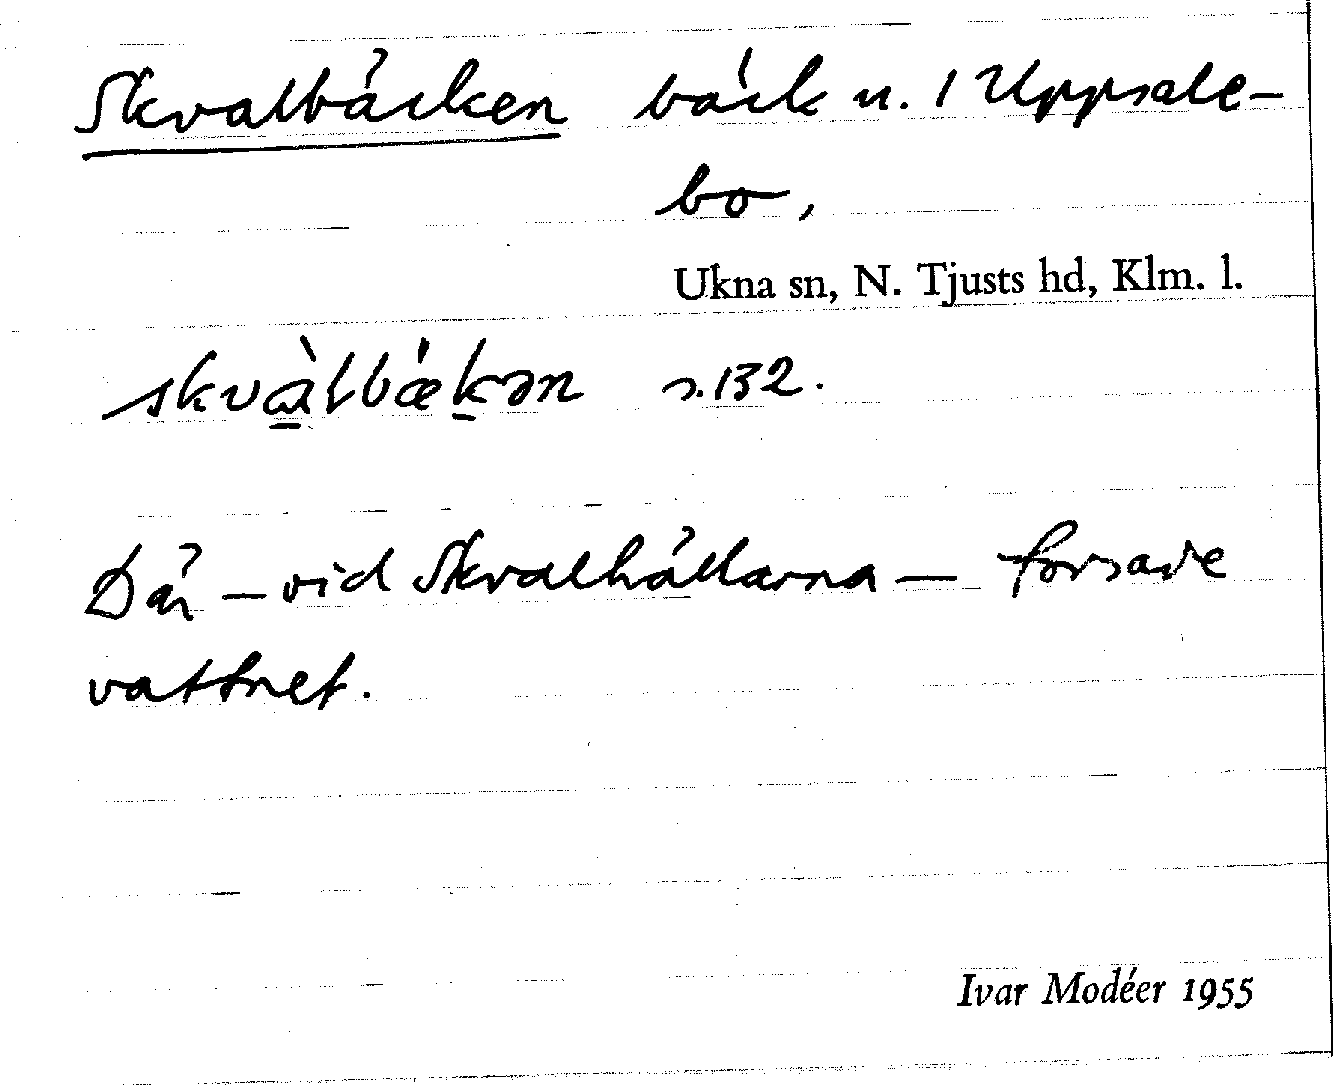 Skvalbäcken bäck u. 1 Uppsale-
bo,
Ukna sn, N. Tjusts hd, Klm. l.
skvàlbækən s. 132.
Där – vid Skvalhällarna – forsade
vattnet.
Ivar Modéer 1955